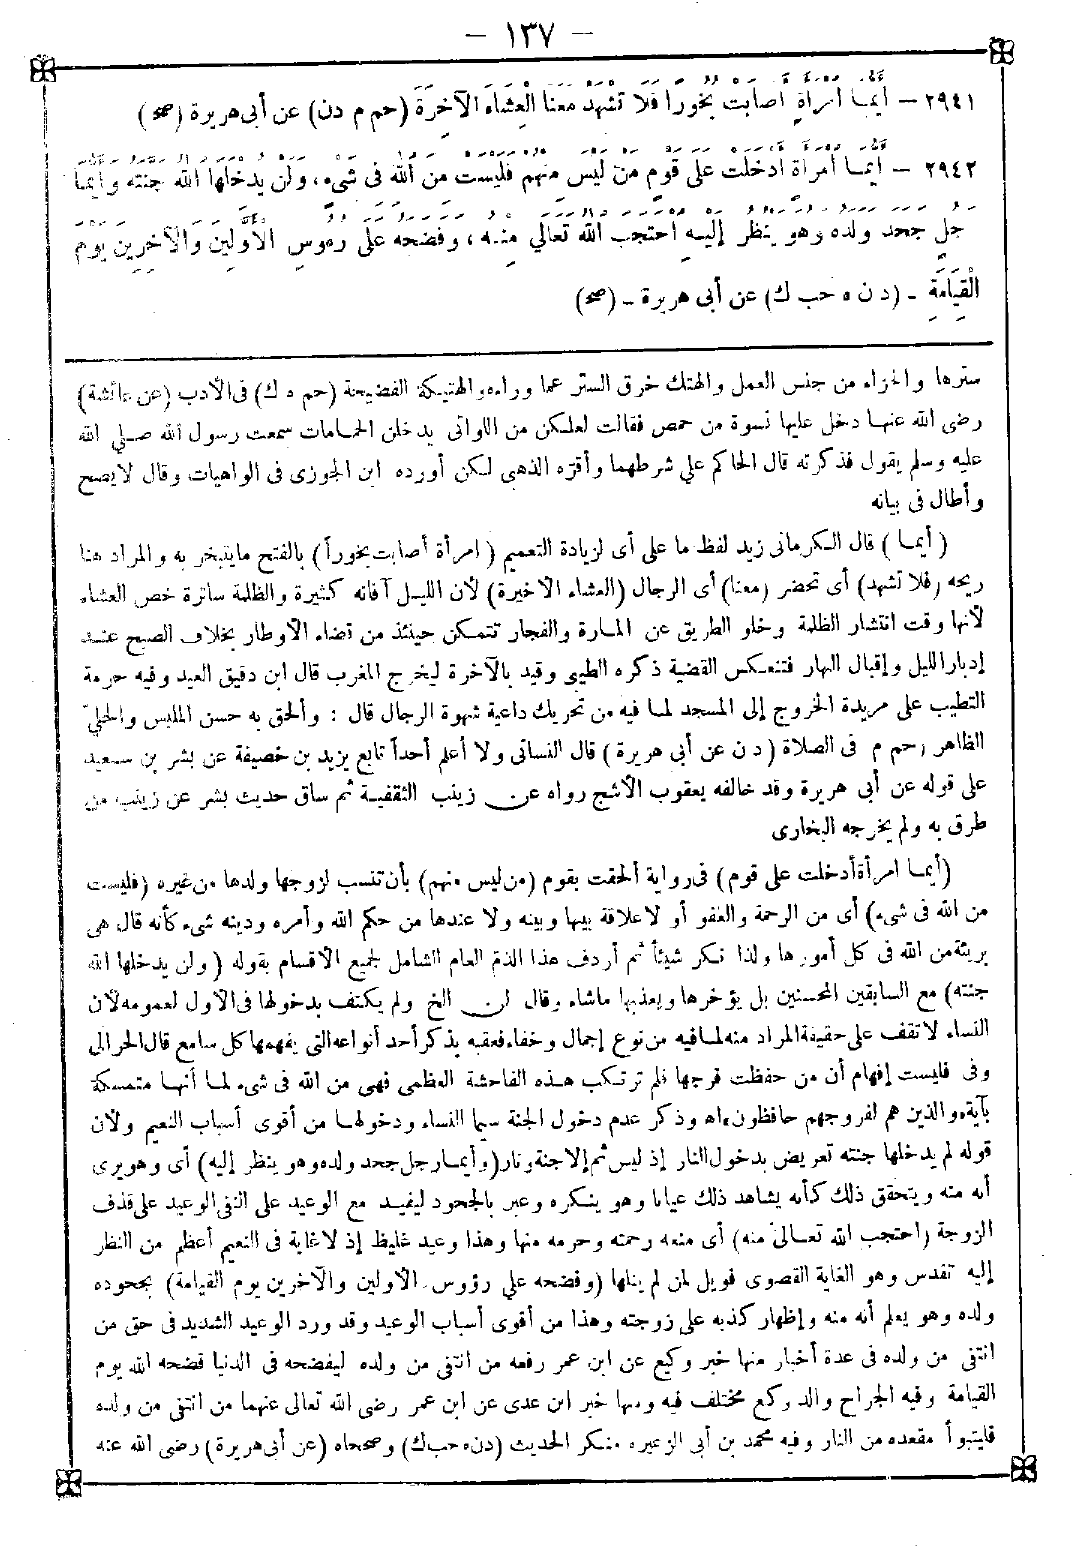 - ١٣٧ -
٢٩٤١ - أَيُّمَا امْرَأَةٍ أَصَابَتْ بَخُورًا فَلَا تَشْهَدْ مَعَنَا الْعِشَاءَ الْآخِرَةَ (حم م د ن) عن أبى هريرة (صح)
٢٩٤٢ - أَيُّمَا امْرَأَةٍ أَدْخَلَتْ عَلَى قَوْمٍ مَنْ لَيْسَ مِنْهُمْ فَلَيْسَتْ مِنَ اللهِ فِى شَىْءٍ، وَلَنْ يُدْخِلَهَا اللهُ جَنَّتَهُ وَأَيُّمَا
رَجُلٍ جَحَدَ وَلَدَهُ وَهُوَ يَنْظُرُ إِلَيْهِ احْتَجَبَ اللهُ تَعَالَى مِنْهُ، وَفَضَحَهُ عَلَى رُءُوسِ الْأَوَّلِينَ وَالْآخِرِينَ يَوْمَ
الْقِيَامَةِ - (د ن ه حب ك) عن أبى هريرة - (صح)
سترها والجزاء من جنس العمل والهتك خرق الستر عما وراءه والهتيكة الفضيحة (حم ه ك) فى الأدب (عن عائشة)
رضى الله عنها دخل عليها نسوة من حمص فقالت لعلكن من اللواتى يدخلن الحمامات سمعت رسول الله صلى الله
عليه وسلم يقول فذكرته قال الحاكم على شرطهما وأقره الذهبى لكن أورده ابن الجوزى فى الواهيات وقال لا يصح
وأطال فى بيانه
(أيما) قال الكرمانى زيد لفظ ما على أى لزيادة التعميم (امرأة أصابت بخوراً) بالفتح ما يتبخر به والمراد هنا
ريحه (فلا تشهد) أى تحضر (معنا) أى الرجال (العشاء الاخيرة) لأن الليل آفاته كثيرة والظلمة ساترة خص العشاء
لأنها وقت انتشار الظلمة وخلو الطريق عن المارة والفجار تتمكن حينئذ من قضاء الأوطار بخلاف الصبح عند
إدبار الليل وإقبال النهار فتنعكس القضية ذكره الطيبى وقيد بالآخرة ليخرج المغرب قال ابن دقيق العيد وفيه حرمة
التطيب على مريدة الخروج إلى المسجد لما فيه من تحريك داعية شهوة الرجال قال : وألحق به حسن الملبس والحلىّ
الظاهر (حم م فى الصلاة (د ن عن أبى هريرة) قال النسائى ولا أعلم أحداً تابع يزيد بن خصيفة عن بشر بن سعيد
على قوله عن أبى هريرة وقد خالفه يعقوب الأشج رواه عن زينب الثقفية ثم ساق حديث بشر عن زينب من
طرق به ولم يخرجه البخارى
(أيما امرأة أدخلت على قوم) فى رواية ألحقت بقوم (من ليس منهم) بأن تنسب لزوجها ولدها من غيره (فليست
من الله فى شىء) أى من الرحمة والعفو أو لا علاقة بينها وبينه ولا عندها من حكم الله وأمره ودينه شىء كأنه قال هى
بريئة من الله فى كل أمورها ولذا نكر شيئاً ثم أردف هذا الذم العام الشامل لجميع الأقسام بقوله (ولن يدخلها الله
جنته) مع السابقين المحسنين بل يؤخرها ويعذبها ماشاء وقال لن الخ ولم يكتف بدخولها فى الاول لعمومه لأن
النساء لا تقف على حقيقة المراد منه لما فيه من نوع إجمال وخفاء فعقبه بذكر أحد أنواعه التى يفهمها كل سامع قال الحرالى
وفى فليست إفهام أن من حفظت فرجها فلم ترتكب هذه الفاحشة العظمى فهى من الله فى شىء لما أنها متمسكة
بآية ،والذين هم لفروجهم حافظون، اه وذكر عدم دخول الجنة سيما النساء ودخولها من أقوى أسباب النعيم ولأن
قوله لم يدخلها جنته تعريض بدخول النار إذ ليس ثم إلا جنة ونار (وأيما رجل جحد ولده وهو ينظر إليه) أى وهو يرى
أنه منه ويتحقق ذلك كأنه يشاهد ذلك عيانا وهو ينكره وعبر بالجحود ليفيد مع الوعيد على النفى الوعيد على قذف
الزوجة (احتجب الله تعالى منه) أى منعه رحمته وحرمه منها وهذا وعيد غليظ إذ لا غاية فى النعيم أعظم من النظر
إليه تقدس وهو الغاية القصوى فويل لمن لم ينلها (وفضحه على رؤوس الأولين والآخرين يوم القيامة) بجحوده
ولده وهو يعلم أنه منه وإظهار كذبه على زوجته وهذا من أقوى أسباب الوعيد وقد ورد الوعيد الشديد فى حق من
انتفى من ولده فى عدة أخبار منها خبر وكيع عن ابن عمر رفعه من انتفى من ولده ليفضحه فى الدنيا فضحه الله يوم
القيامة وفيه الجراح والد وكيع مختلف فيه ومنها خبر ابن عدى عن ابن عمر رضى الله تعالى عنهما من انتفى من ولده
فليتبوأ مقعده من النار وفيه محمد بن أبى الزعيزعة منكر الحديث (د ن ه حب ك) وصححاه (عن أبى هريرة) رضى الله عنه